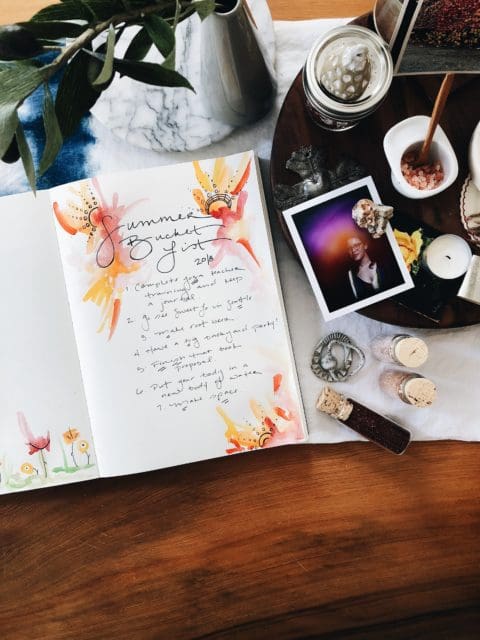 Summer
Bucket
List
2018
1. Complete yoga teacher
training and keep
a journal
2. Go see Sweet Jo in Seattle
3. Make root beer
4. Have a big backyard party!
5. Finish that book
proposal
6. Put your body in a
new body of water
7. Make space